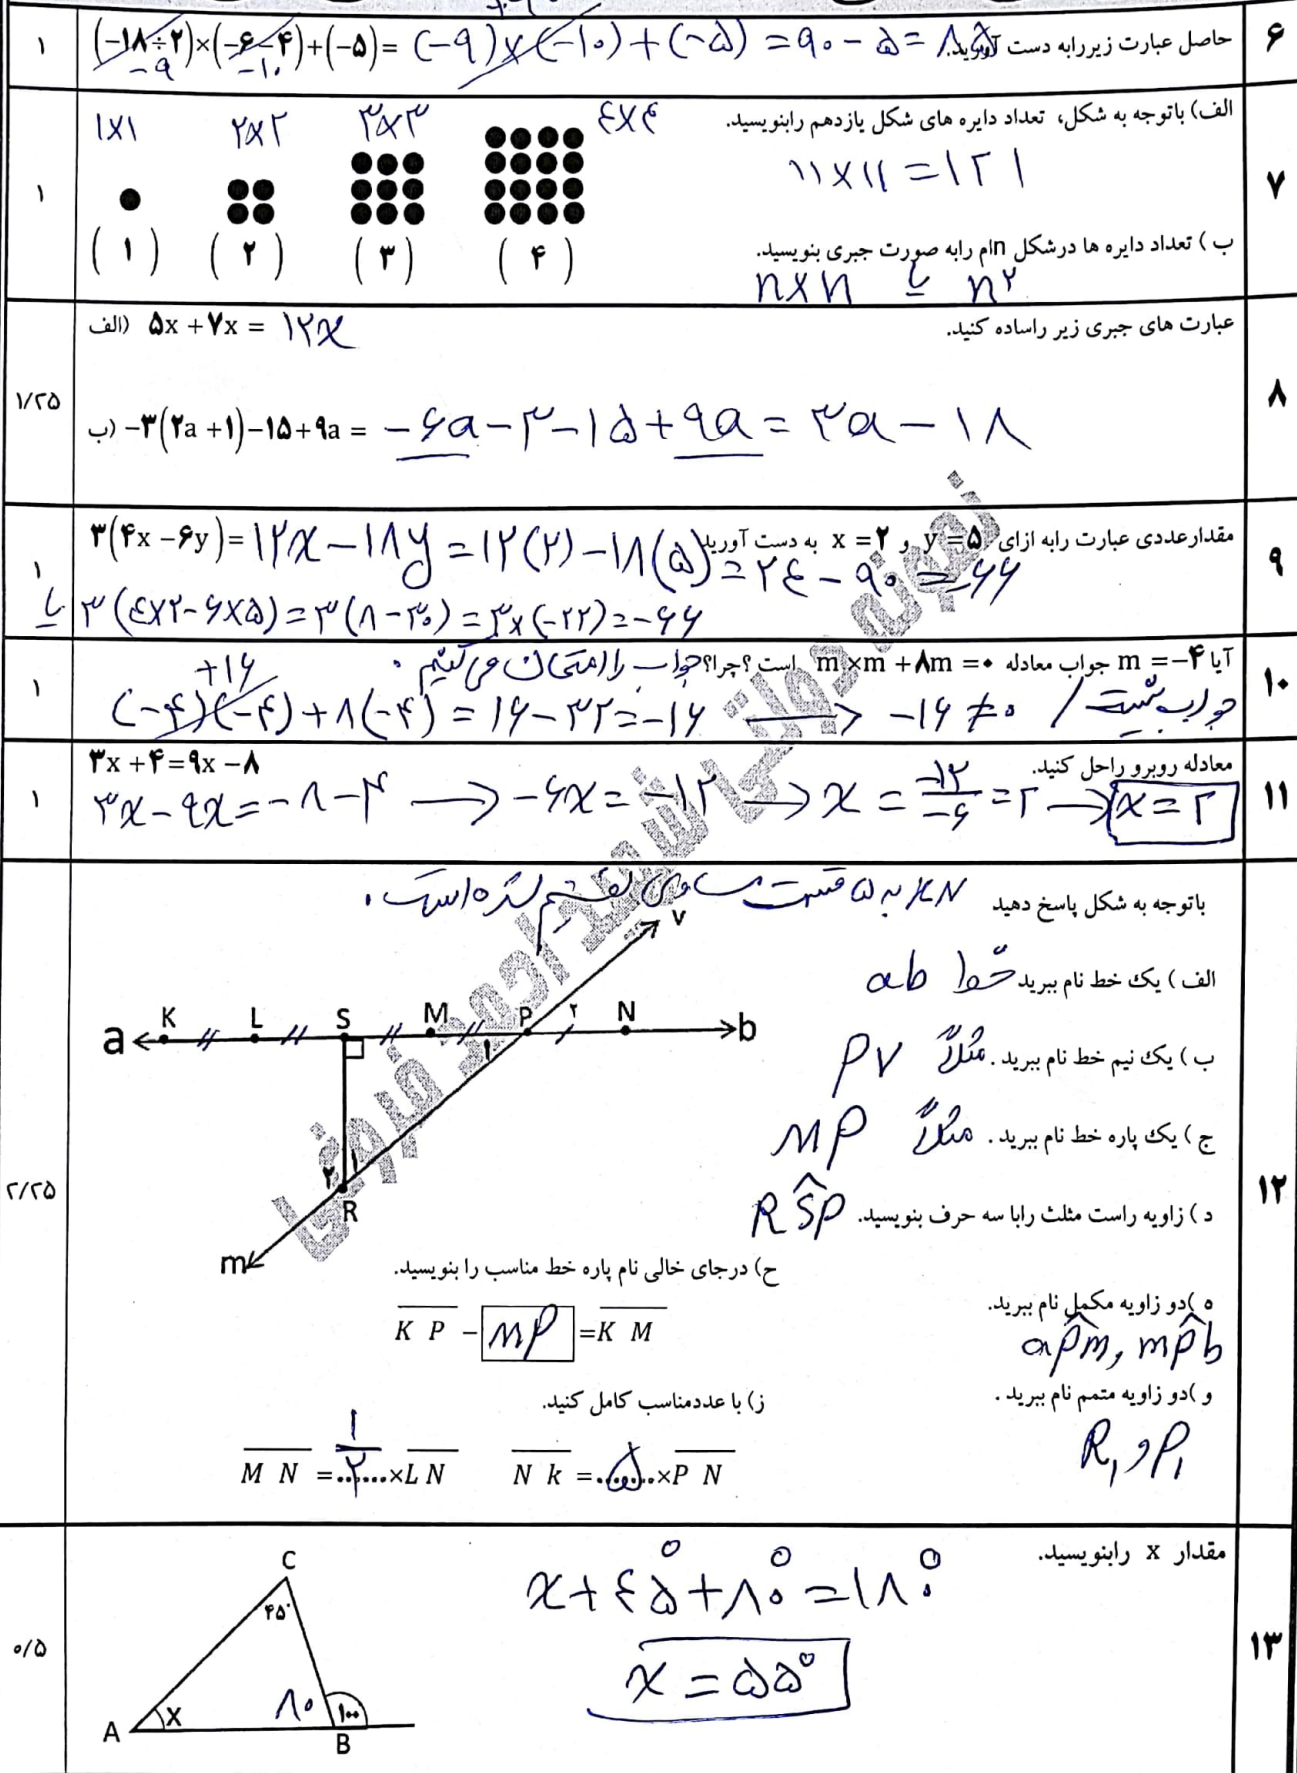 ۶
حاصل عبارت زیررابه دست آورید.
(−۱۸÷۲)×(−۶−۴)+(−۵)= (−۹)×(−۱۰)+(−۵) =۹۰−۵= ۸۵
−۹ −۱۰
۱
۷
الف) باتوجه به شکل، تعداد دایره های شکل یازدهم رابنویسید.
۱×۱ ۲×۲ ۳×۳ ۴×۴
۱۱×۱۱=۱۲۱
۱
(۱) (۲) (۳) (۴)
ب) تعداد دایره ها درشکل nام رابه صورت جبری بنویسید.
n×n یا n²
۸
عبارت های جبری زیر راساده کنید.
الف) ۵x +۷x = ۱۲x
۱/۲۵
ب) −۳(۲a +۱)−۱۵+۹a = −۶a−۳−۱۵+۹a= ۳a−۱۸
۹
مقدارعددی عبارت رابه ازای y =۵ و x =۲ به دست آورید
۳(۴x −۶y)= ۱۲x−۱۸y =۱۲(۲)−۱۸(۵)=۲۴−۹۰=−۶۶
۱
یا ۳(۴×۲−۶×۵)=۳(۸−۳۰)=۳×(−۲۲)=−۶۶
۱۰
آیا m =−۴ جواب معادله m×m +۸m =۰ است ؟چرا؟ جواب را امتحان می کنیم .
+۱۶
(−۴)(−۴)+۸(−۴)=۱۶−۳۲=−۱۶ → −۱۶≠۰ / جواب نیست
۱
۱۱
معادله روبرو راحل کنید.
۳x +۴=۹x −۸
۳x−۹x=−۸−۴ → −۶x=−۱۲ → x = −۱۲/−۶ =۲ → x=۲
۱
۱۲
باتوجه به شکل پاسخ دهید KN به ۵ قسمت مساوی تقسیم شده است .
الف ) یک خط نام ببرید خط ab
ب ) یک نیم خط نام ببرید . مثلاً PV
ج ) یک پاره خط نام ببرید . مثلاً MP
د ) زاویه راست مثلث رابا سه حرف بنویسید. RŜP
ه )دو زاویه مکمل نام ببرید.
aP̂m , mP̂b
و )دو زاویه متمم نام ببرید .
R₁ و P₁
۲/۲۵
a K L S M P ۲ N b
v
۱
۲ ۱
R
m
ح) درجای خالی نام پاره خط مناسب را بنویسید.
K P − MP =K M
ز) با عددمناسب کامل کنید.
M N =...۱/۲...×L N N k =...۵...×P N
۱۳
مقدار x رابنویسید.
x+۴۵°+۸۰°=۱۸۰°
x=۵۵°
۰/۵
C
۴۵°
A x ۸۰ ۱۰۰
B
نمونه دولتی شهید احمد فیروزی